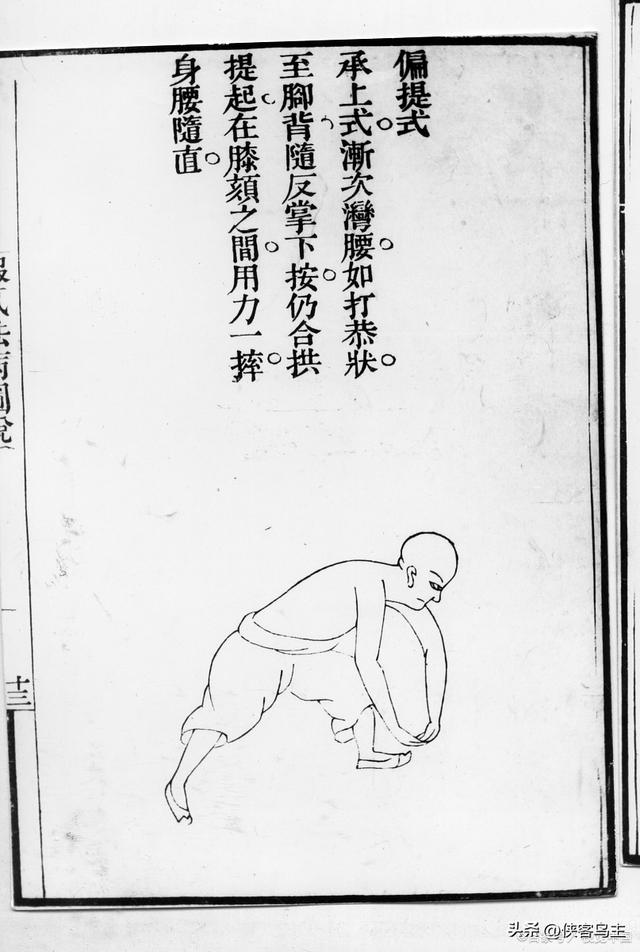 偏提式
承上式漸次灣腰如打恭狀
至腳背隨反掌下按仍合拱
提起在膝頦之間用力一摔
身腰隨直
十三
头条 @侠客鸟主